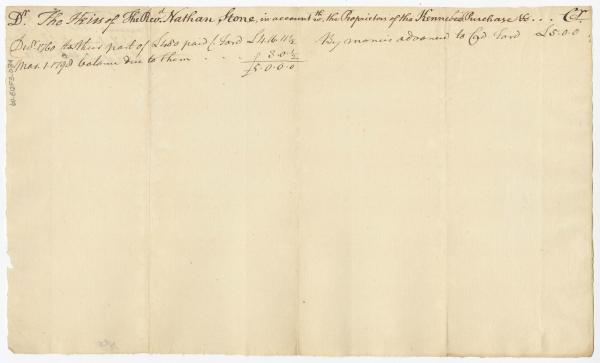 Dr. The Heirs of The Revd. Nathan Stone, in account wth. the Propriotors of the Kennebeck Purchase &c... Cr.
Decr. 1760 to their part of £480 paid C. Ford £4.16.11½ By monies advanced to C. Ford £5.0.0
Mar. 1. 1798 balance due to them . . . 3.0½
£5.0.0